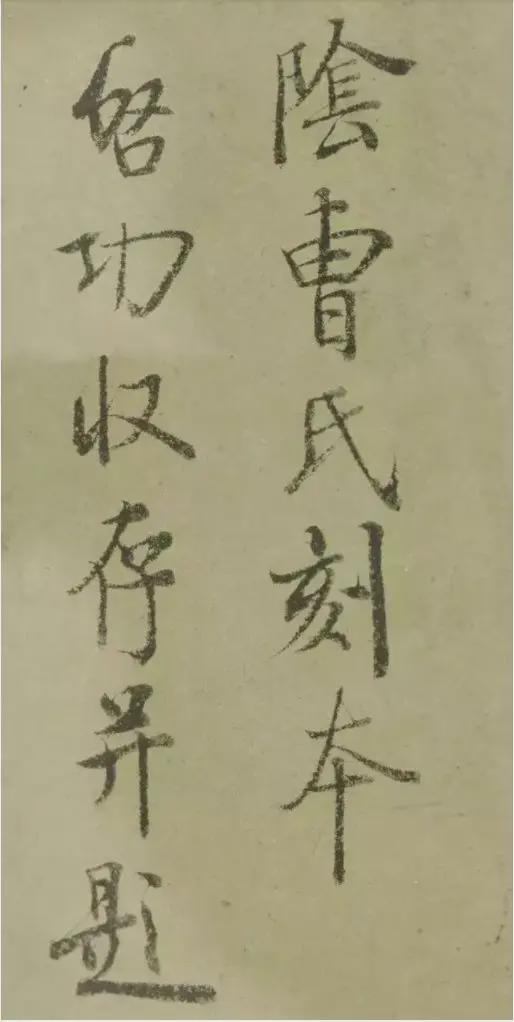 陰曹氏刻本
啓功收存并題